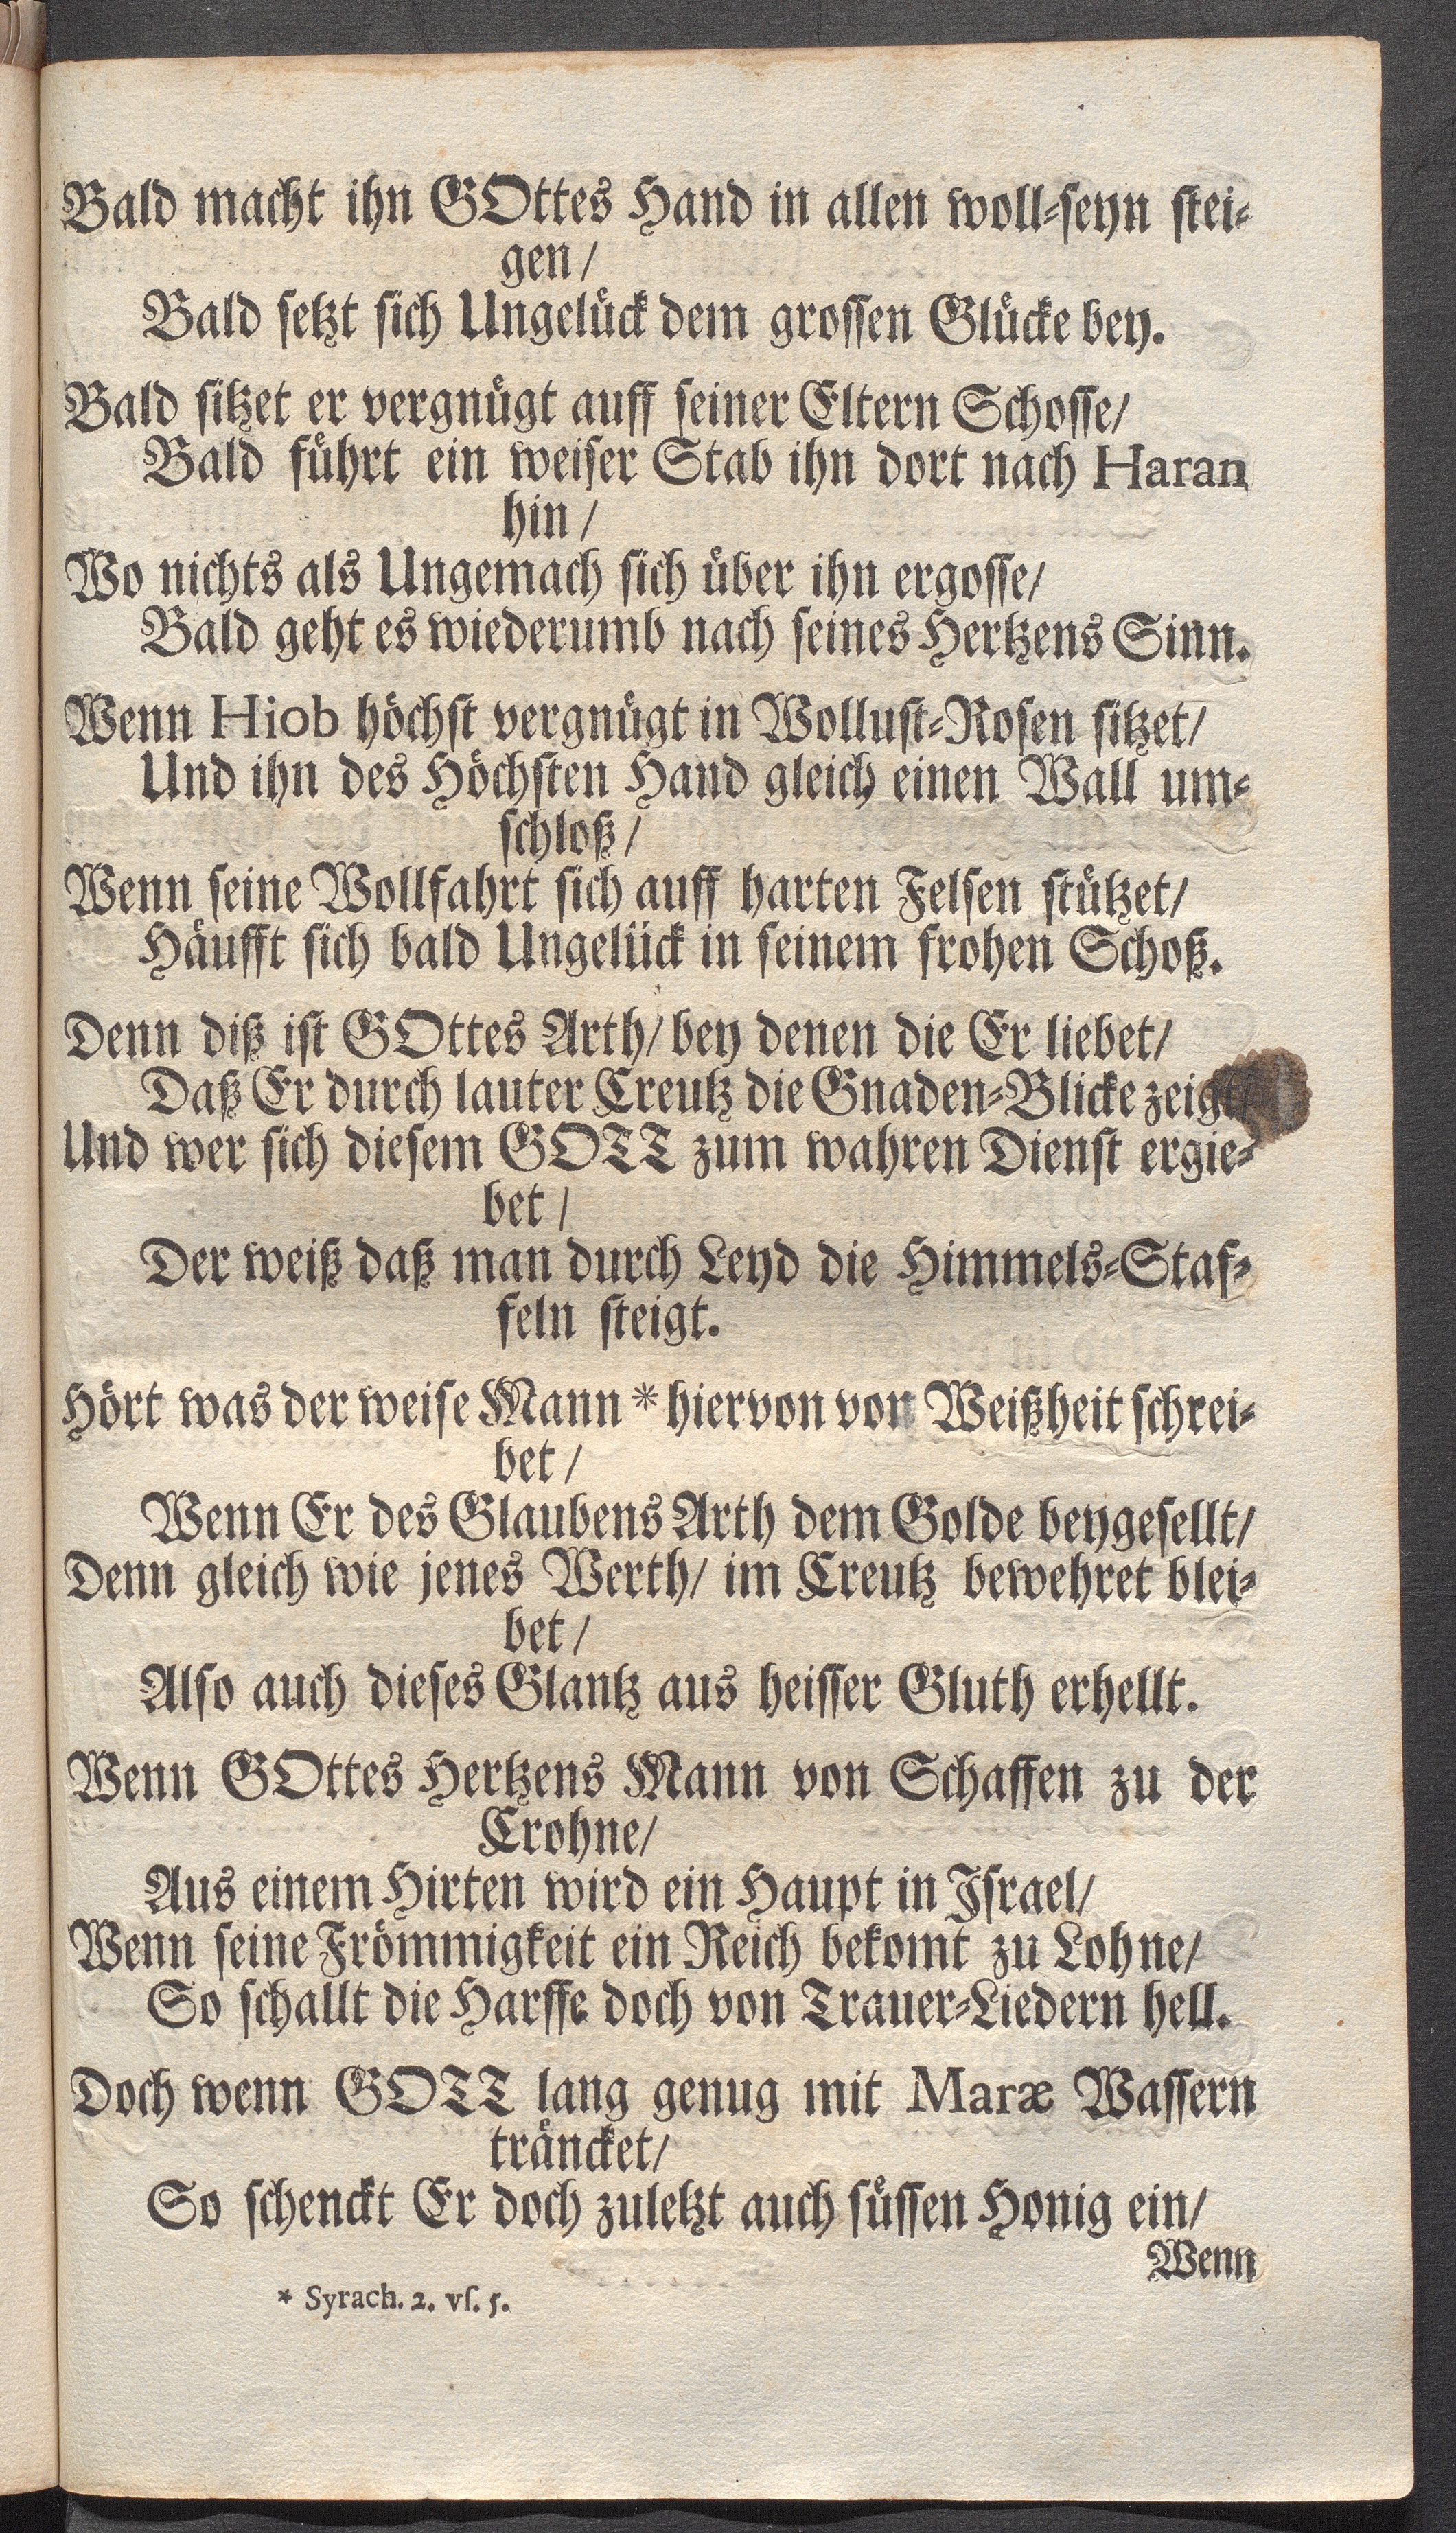 Bald macht ihn GOttes Hand in allen woll-seyn stei-
gen/
Bald setzt sich Ungelück dem grossen Glücke bey.
Bald sitzet er vergnügt auff seiner Eltern Schosse/
Bald führt ein weiser Stab ihn dort nach Haran
hin/
Wo nichts als Ungemach sich über ihn ergosse/
Bald geht es wiederumb nach seines Hertzens Sinn.
Wenn Hiob höchst vergnügt in Wollust-Rosen sitzet/
Und ihn des Höchsten Hand gleich einen Wall um-
schloß/
Wenn seine Wollfahrt sich auff harten Felsen stützet/
Häufft sich bald Ungelück in seinem frohen Schoß.
Denn diß ist GOttes Arth/ bey denen die Er liebet/
Daß Er durch lauter Creutz die Gnaden-Blicke zeigt/
Und wer sich diesem GOTT zum wahren Dienst ergie-
bet/
Der weiß daß man durch Leyd die Himmels-Staf-
feln steigt.
Hört was der weise Mann * hiervon von Weißheit schrei-
bet/
Wenn Er des Glaubens Arth dem Golde beygesellt/
Denn gleich wie jenes Werth/ im Creutz bewehret blei-
bet/
Also auch dieses Glantz aus heisser Gluth erhellt.
Wenn GOttes Hertzens Mann von Schaffen zu der
Crohne/
Aus einem Hirten wird ein Haupt in Israel/
Wenn seine Frömmigkeit ein Reich bekomt zu Lohne/
So schallt die Harffe doch von Trauer-Liedern hell.
Doch wenn GOTT lang genug mit Maræ Wassern
träncket/
So schenckt Er doch zuletzt auch süssen Honig ein/
Wenn
* Syrach. 2. vſ. 5.